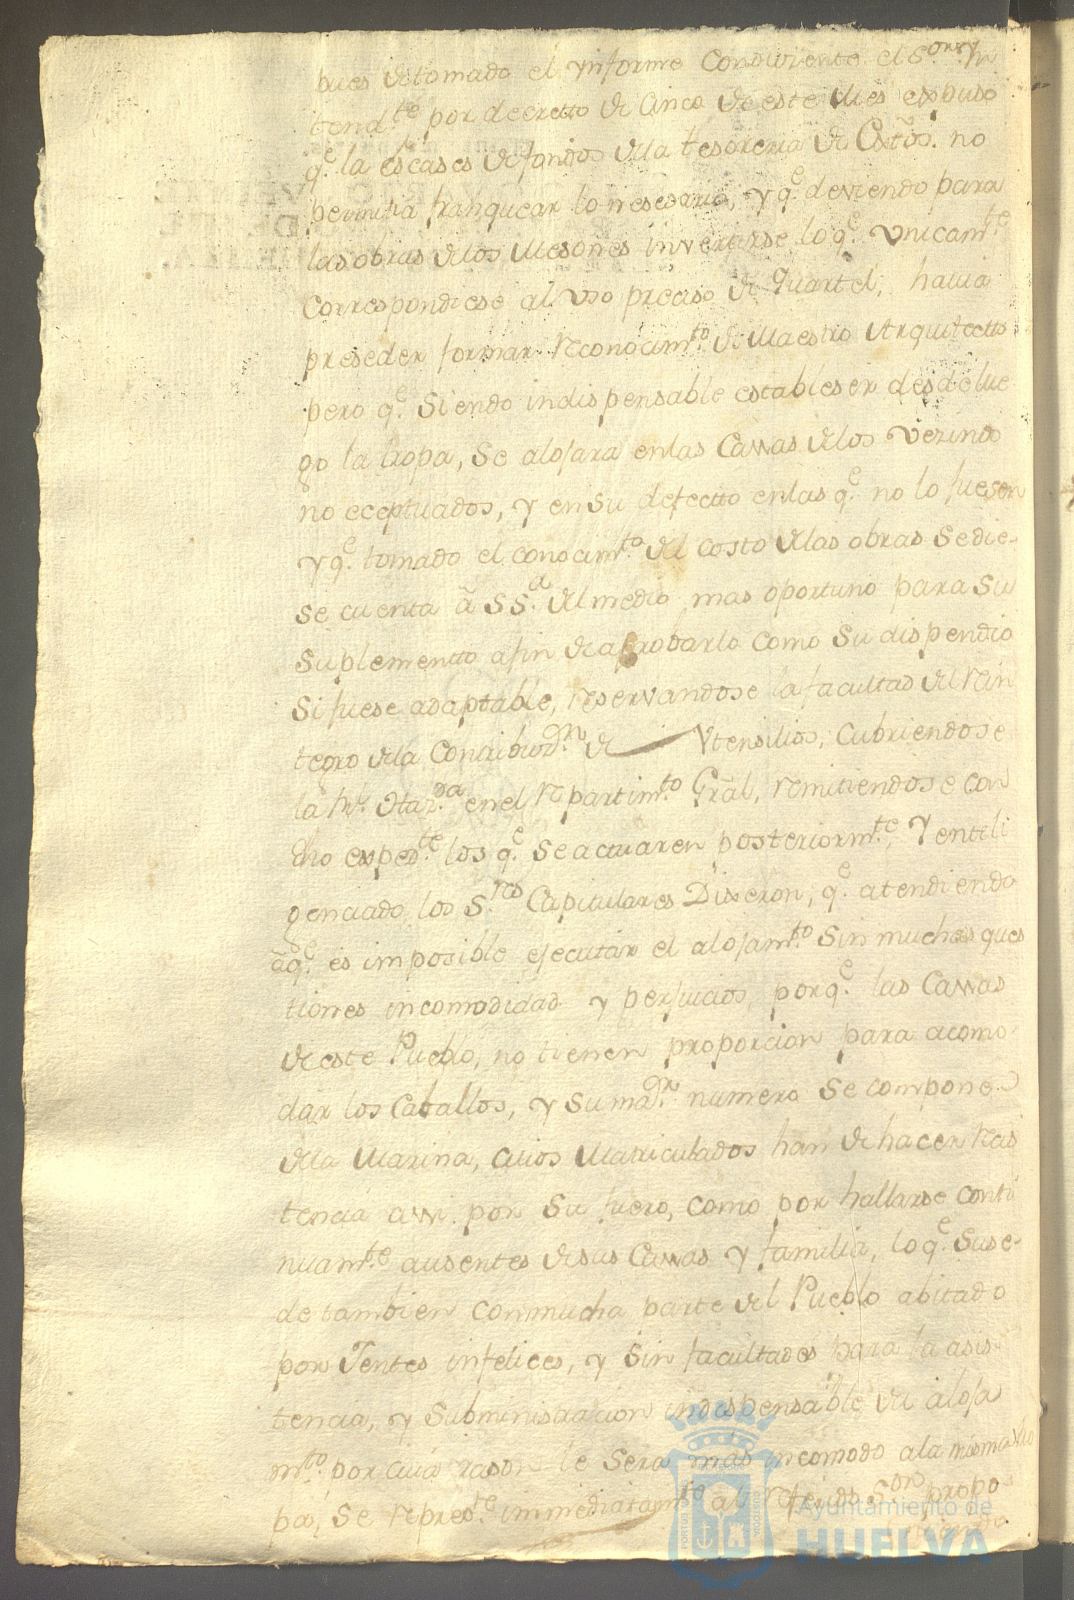 pues de tomado el ynforme Conduzente el S.or yn
tend.te por decretto de Cinco de este Mes expuso
q.e la escases de fondos de la tesoreria de Extôs. no
permitia franquear lo nesesario, y q.e deviendo para
las obras de los Mesones invertirse lo q.e Vnicam.te
Correspondiese al vso preciso de Quartel, havia
preseder formar reconocim.to de Maestro Arquitecto
pero q.e Siendo indispensable estableser desde lue
go la tropa, Se alojara en las Cassas de los Vezinos
no eceptuados, y en su defectto en las q.e no lo fuesen
y q.e tomado el conocim.to del costo de las obras Se die-
se cuenta â S S.a del medio mas oportuno para Su
Suplementto afin de aprobarlo como Su dispendio
Si fuese adaptable, reservandose la facultad del rein
tegro de la Contribuz.on de Vtensilios, Cubriendose
la en el repartim.to Grãl, remitiendose con
dho exped.te los q.e Se actuaren posteriorm.te, Y enteli
genciado los S.res Capitulares Dixeron, q.e atendiendo
âq.e es imposible ejecutar el alojam.to Sin muchas ques
tiones incomodidad y perjuicios, porq.e las Cassas
de este Pueblo, no tienen proporcion para acomo
dar los Caballos, y su ma.or numero Se compone
de la Marina, cuios Matriculados han de hacer resis
tencia assi por Su fuero, como por hallarse conti
nuam.te ausentes de sus Cassas y familia, lo q.e Suse-
de tambien con mucha parte del Pueblo abitado
por Jentes infelices, y Sin facultades para la asis
tencia, y Subministracion indispensable de aloja
m.to por cuia rason le Sera mas incomodo a la misma tro
pa, Se repres.te immediatam.te al referido S.or propo
Ayuntamiento de
HUELVA
PORTUS
CUSTODIA